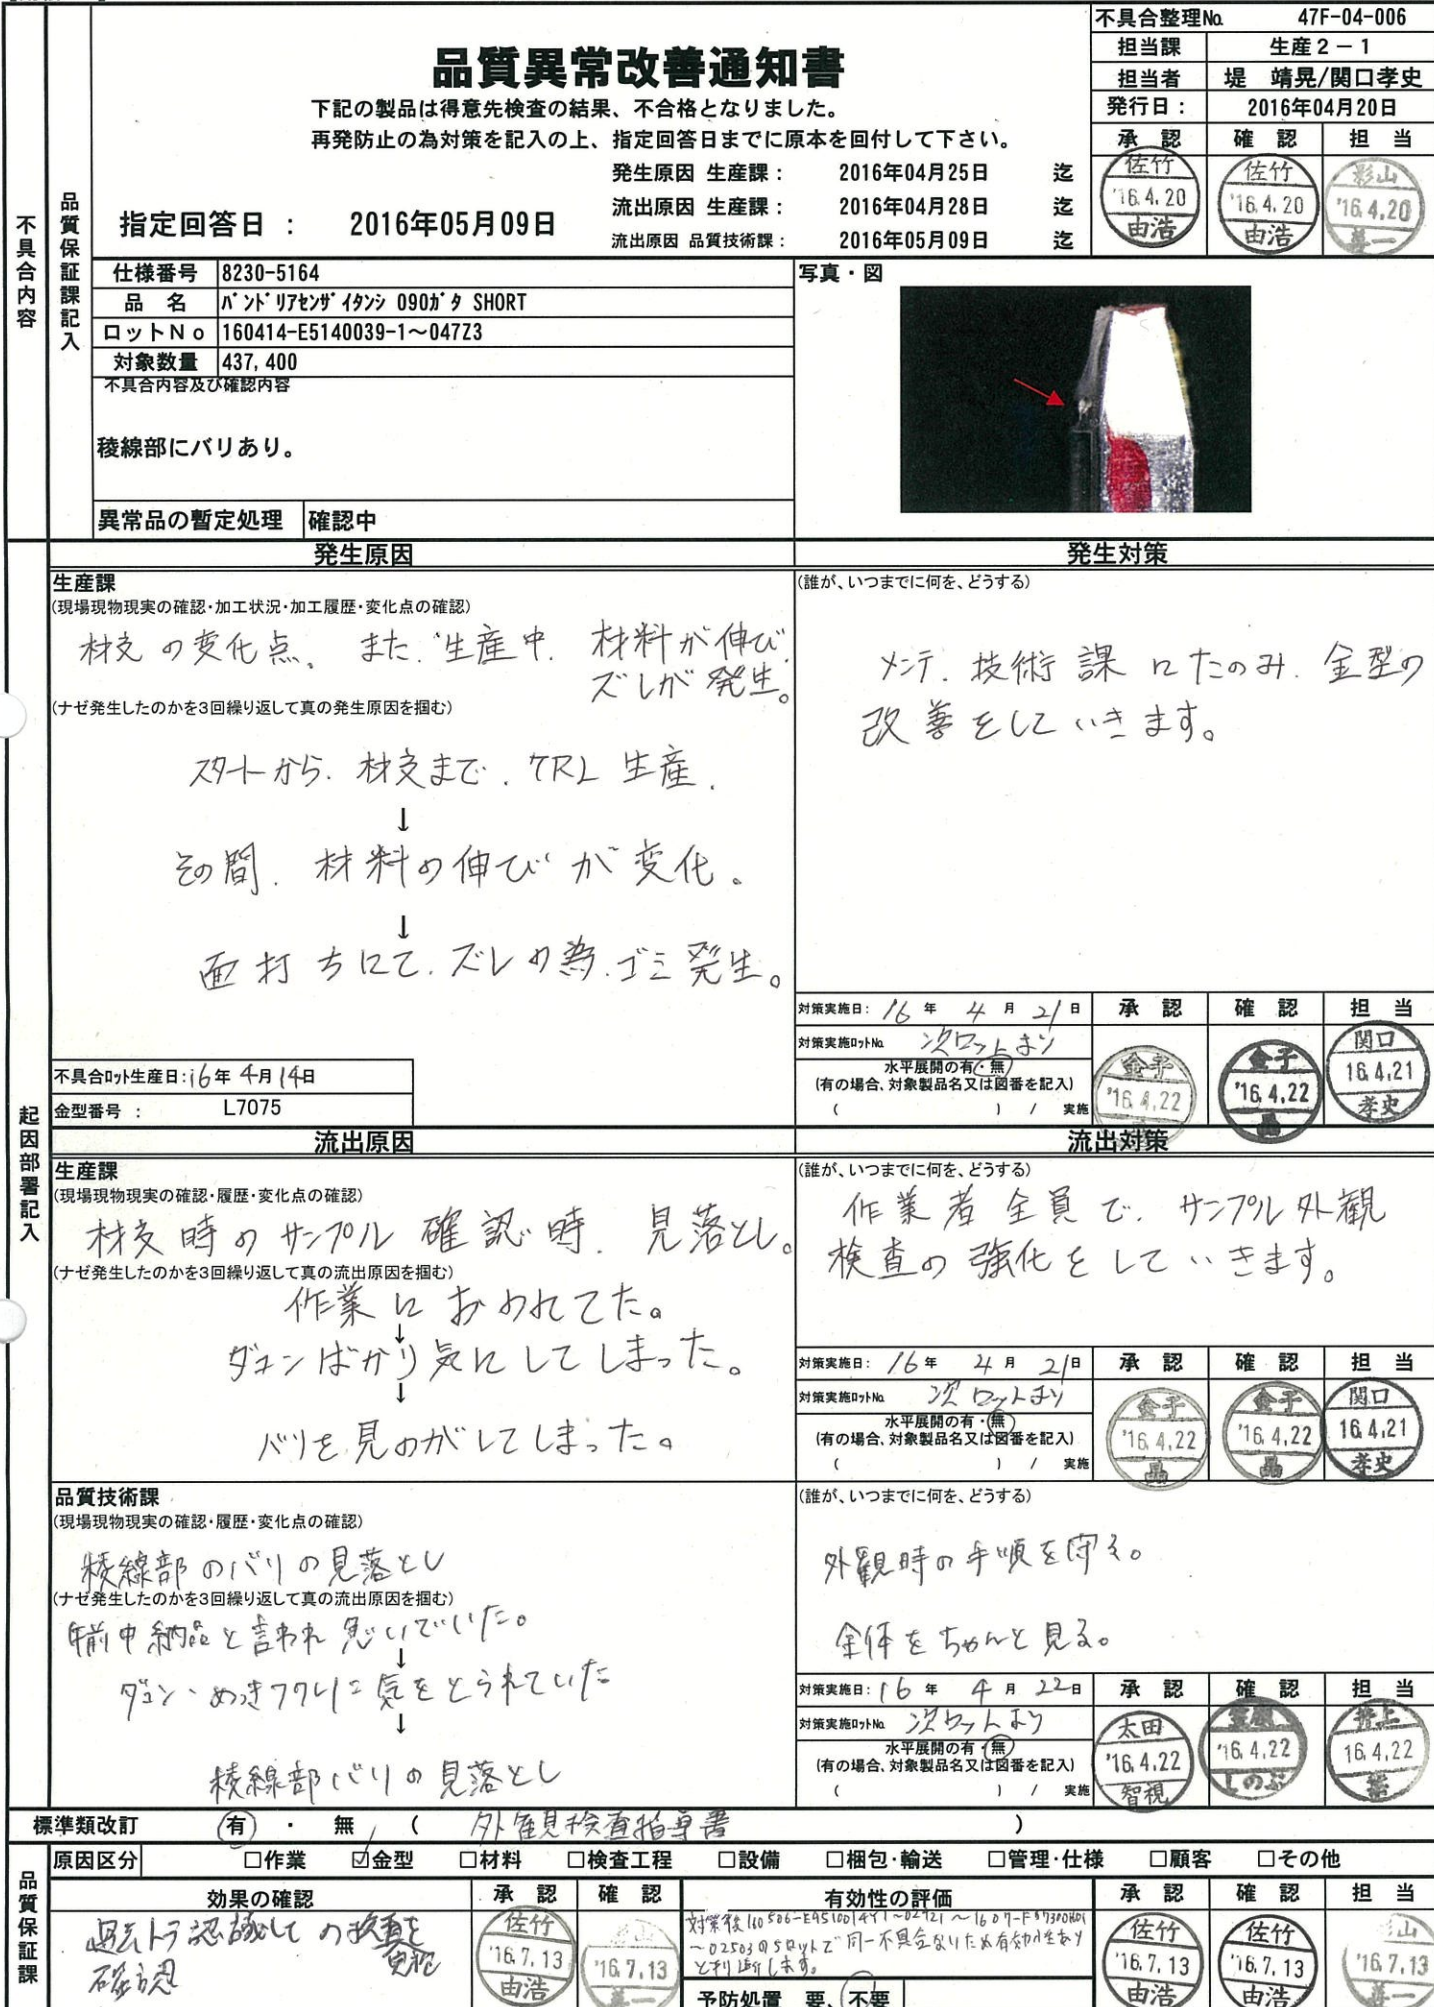 不具合整理No. 47F-04-006
担当課 生産2-1
担当者 堤 靖晃/関口孝史
発行日: 2016年04月20日
承認 確認 担当
佐竹 '16.4.20 由浩
佐竹 '16.4.20 由浩
影山 '16.4.20
品質異常改善通知書
下記の製品は得意先検査の結果、不合格となりました。
再発防止の為対策を記入の上、指定回答日までに原本を回付して下さい。
発生原因 生産課: 2016年04月25日 迄
流出原因 生産課: 2016年04月28日 迄
流出原因 品質技術課: 2016年05月09日 迄
指定回答日: 2016年05月09日
不具合内容
品質保証課記入
仕様番号 8230-5164
品名 バンドリアセンザイタンシ 090ガタ SHORT
ロットNo 160414-E5140039-1~047Z3
対象数量 437,400
不具合内容及び確認内容
稜線部にバリあり。
異常品の暫定処理 確認中
写真・図
起因部署記入
発生原因
生産課
(現場現物現実の確認・加工状況・加工履歴・変化点の確認)
材交の変化点。また、生産中、材料が伸び、
ズレが発生。
(ナゼ発生したのかを3回繰り返して真の発生原因を掴む)
スタートから、材交まで、7RL生産、
↓
その間、材料の伸びが変化。
↓
面打ちにて、ズレの為、ゴミ発生。
不具合ロット生産日:16年4月14日
金型番号: L7075
発生対策
(誰が、いつまでに何を、どうする)
メンテ、技術課にたのみ、金型の
改善をしていきます。
対策実施日: 16年 4月 21日
対策実施ロットNo. 次ロットより
水平展開の有・無
(有の場合、対象製品名又は図番を記入)
( ) / 実施
承認 確認 担当
金子 '16.4.22 晶
金子 '16.4.22 晶
関口 16.4.21 孝史
流出原因
生産課
(現場現物現実の確認・履歴・変化点の確認)
材交時のサンプル確認時、見落とし。
(ナゼ発生したのかを3回繰り返して真の流出原因を掴む)
作業におわれてた。
↓
ダコンばかり気にしてしまった。
↓
バリを見のがしてしまった。
流出対策
(誰が、いつまでに何を、どうする)
作業者全員で、サンプル外観
検査の強化をしていきます。
対策実施日: 16年 4月 21日
対策実施ロットNo. 次ロットより
水平展開の有・無
(有の場合、対象製品名又は図番を記入)
( ) / 実施
承認 確認 担当
金子 '16.4.22 晶
金子 '16.4.22 晶
関口 16.4.21 孝史
品質技術課
(現場現物現実の確認・履歴・変化点の確認)
稜線部のバリの見落とし
(ナゼ発生したのかを3回繰り返して真の流出原因を掴む)
午前中納品と言われ急いでいた。
↓
ダコン・めっきフクレに気をとられていた
↓
稜線部バリの見落とし
(誰が、いつまでに何を、どうする)
外観時の手順を守る。
全体をちゃんと見る。
対策実施日: 16年 4月 22日
対策実施ロットNo. 次ロットより
水平展開の有・無
(有の場合、対象製品名又は図番を記入)
( ) / 実施
承認 確認 担当
太田 '16.4.22 智視
'16.4.22 しのぶ
井上 16.4.22
標準類改訂 有・無 ( 外観検査指導書 )
品質保証課
原因区分 □作業 ☑金型 □材料 □検査工程 □設備 □梱包・輸送 □管理・仕様 □顧客 □その他
効果の確認
確認
承認 確認
佐竹 '16.7.13 由浩
'16.7.13
有効性の評価
~02503の5ロットで同一不具合ないため有効性あり
と判断します。
予防処置 要、不要
承認 確認 担当
佐竹 '16.7.13 由浩
佐竹 '16.7.13 由浩
影山 '16.7.13